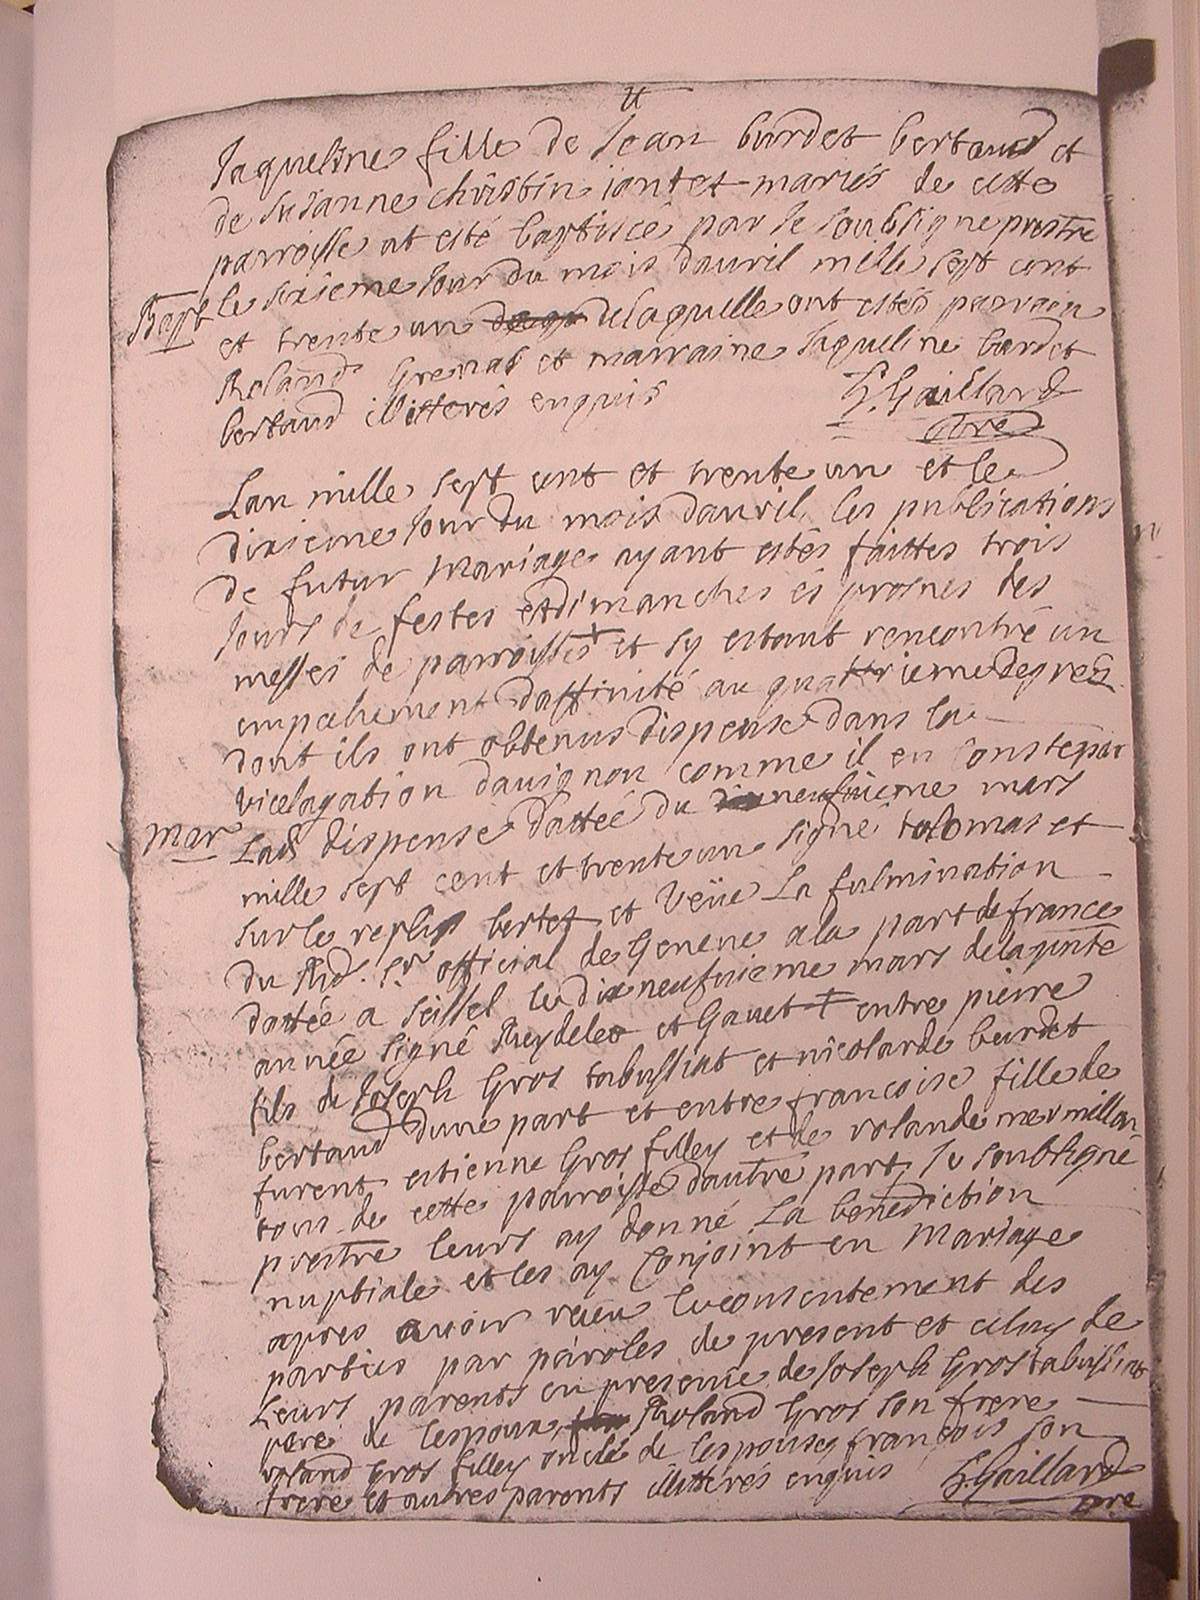 Jaqueline fille de Jean burdet bertaud et
de Susanne christin jantet mariés de cette
parroisse at esté baptisée par le soubsigne prestre
Bapt le sixieme Jour du mois davril mille sept cent
et trente un de laquelle ont estés parrain
Roland Grenat et marraine Jaqueline burdet
bertaud illitterés enquis
G. Gaillard
pbre
Lan mille sept cent et trente un et le
dixieme Jour du mois davril les publications
de futur Mariage ayant estés faittes trois
Jours de festes et dimanches és prosnes des
messes de parroisses et sy estant rencontré un
empechement daffinité au quattrieme degrez
dont ils ont obtenus dispense dans la
vicelagation davignon comme il en Conste par
Mar Lad dispense dattée du neufvieme mars
mille sept cent et trente un signé tolomas et
sur le reply bertet et veüe La fulmination
du Rd. Sr. official de Geneve a la part de france
dattée a seissel le dixneufvieme mars de la pnte
année signé Reydelet et Gavet entre pierre
fils de Joseph Gros tabussiat et nicolarde burdet
bertaud dune part et entre francoise fille de
furent estienne Gros filley et de rolande mermillon
tous de cette parroisse dautre part, Je soubsigné
prestre leurs ay donné La benediction
nuptiale et les ay Conjoint en Mariage
apres avoir receu le consentement des
parties par paroles de present et celuy de
Leurs parents en presence de Joseph Gros tabussiat
pere de lespoux, Roland Gros son frere
roland Gros filley oncle de lespouse, francois son
frere et autres parents illitterés enquis G. Gaillard
pbre